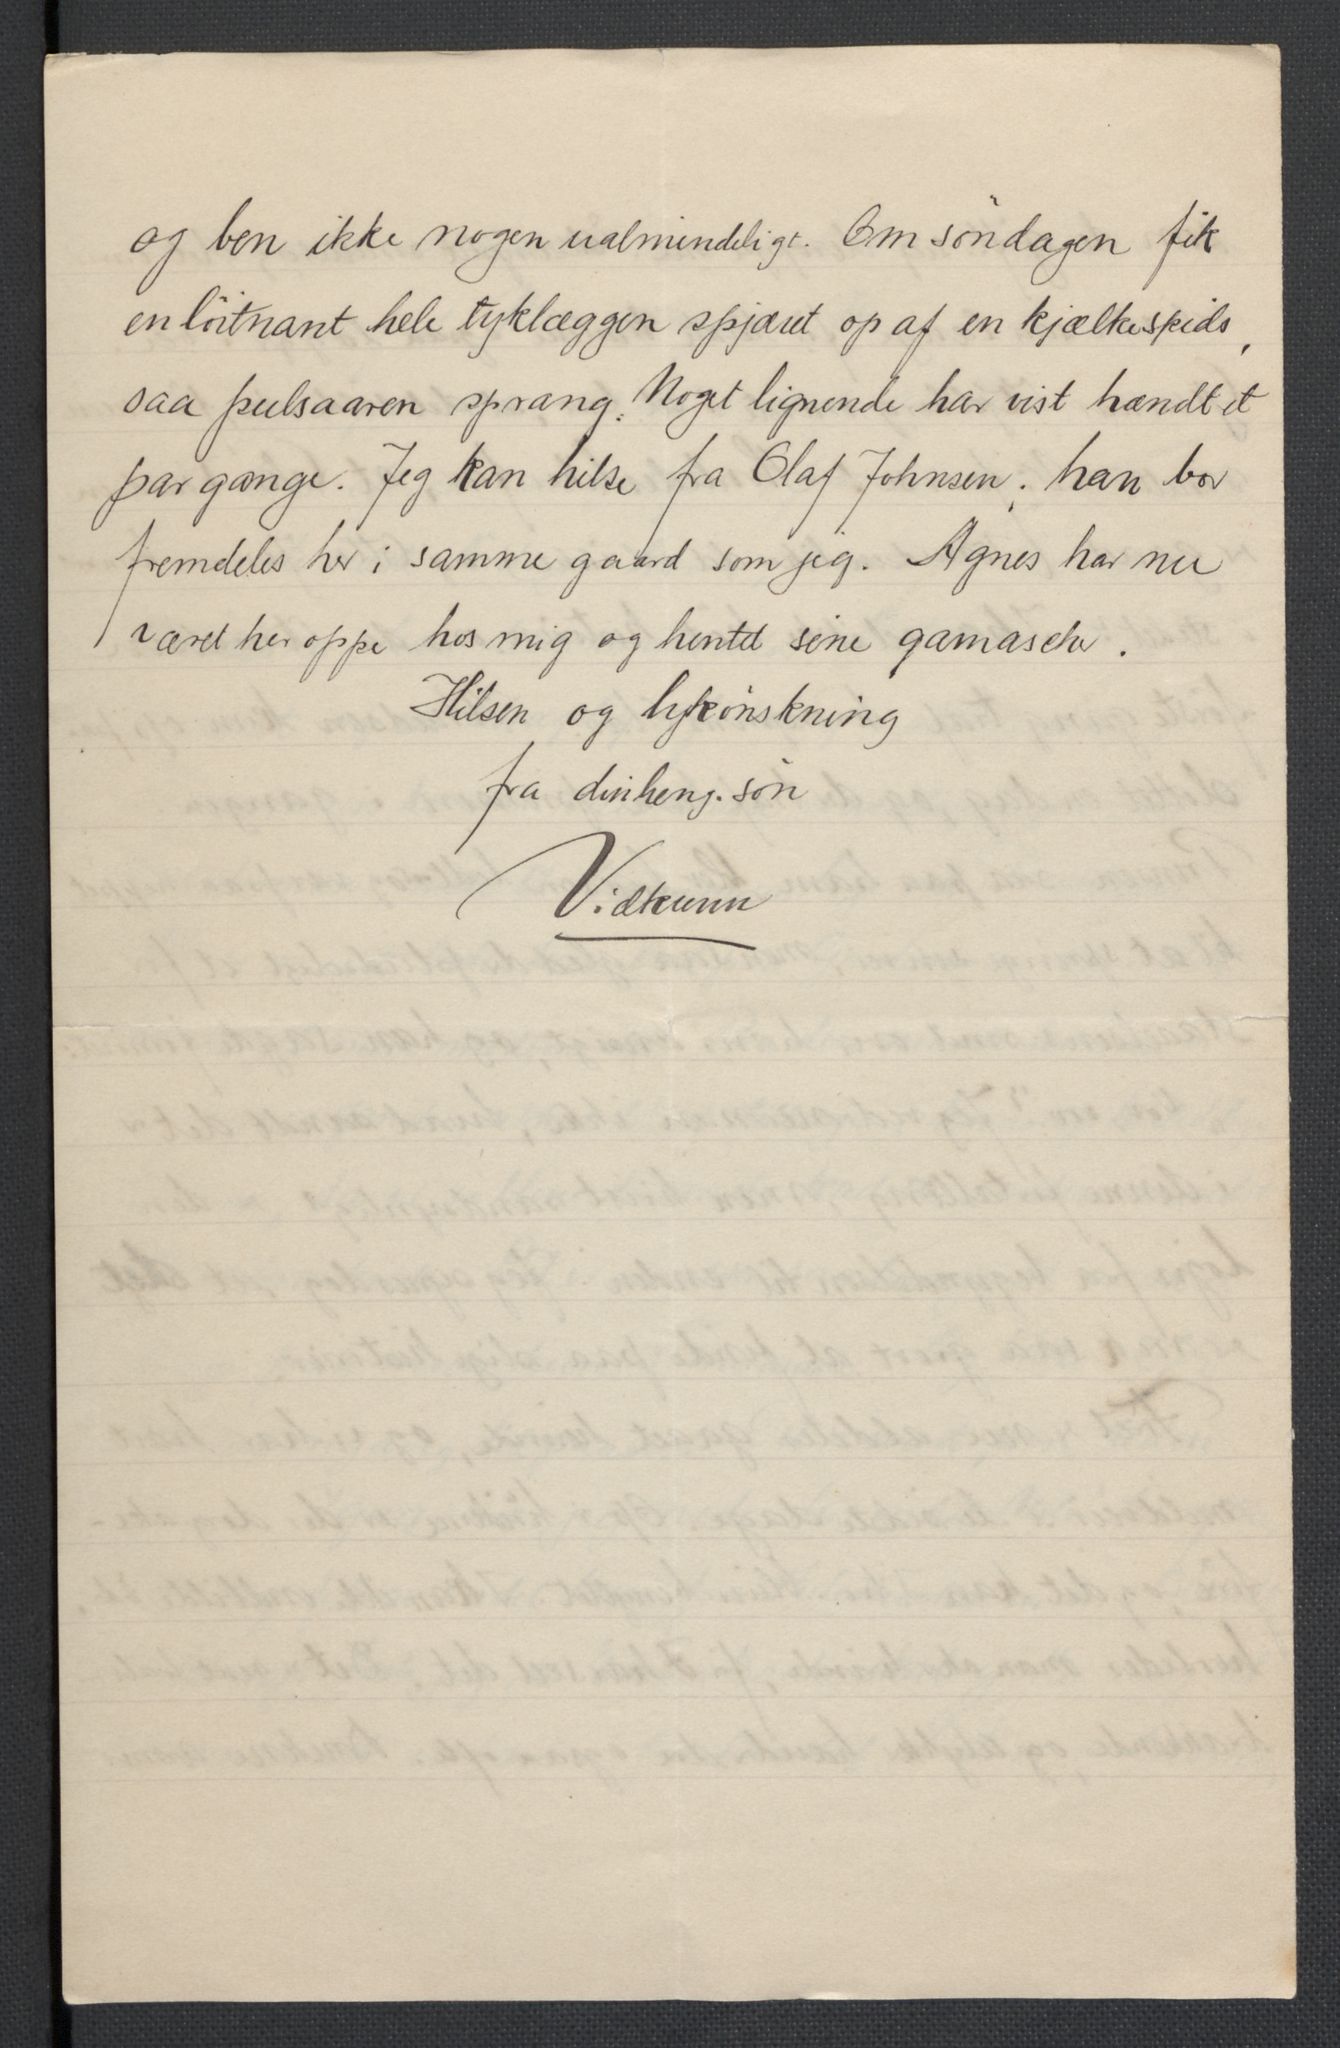 og ben ikke nogen ualmindeligt. Om søndagen fik
en löitnant hele tyklæggen spjæret op af en kjælkespids,
saa pulsaaren sprang. Noget lignende har vist hændt et
par gange. Jeg kan hilse fra Olaf Johnsen; han bor
fremdeles her i samme gaard som jeg. Agnes har nu
været her oppe hos mig og hentet sine gamascher.
Hilsen og lykönskning
fra din heng. sön
Vidkunn